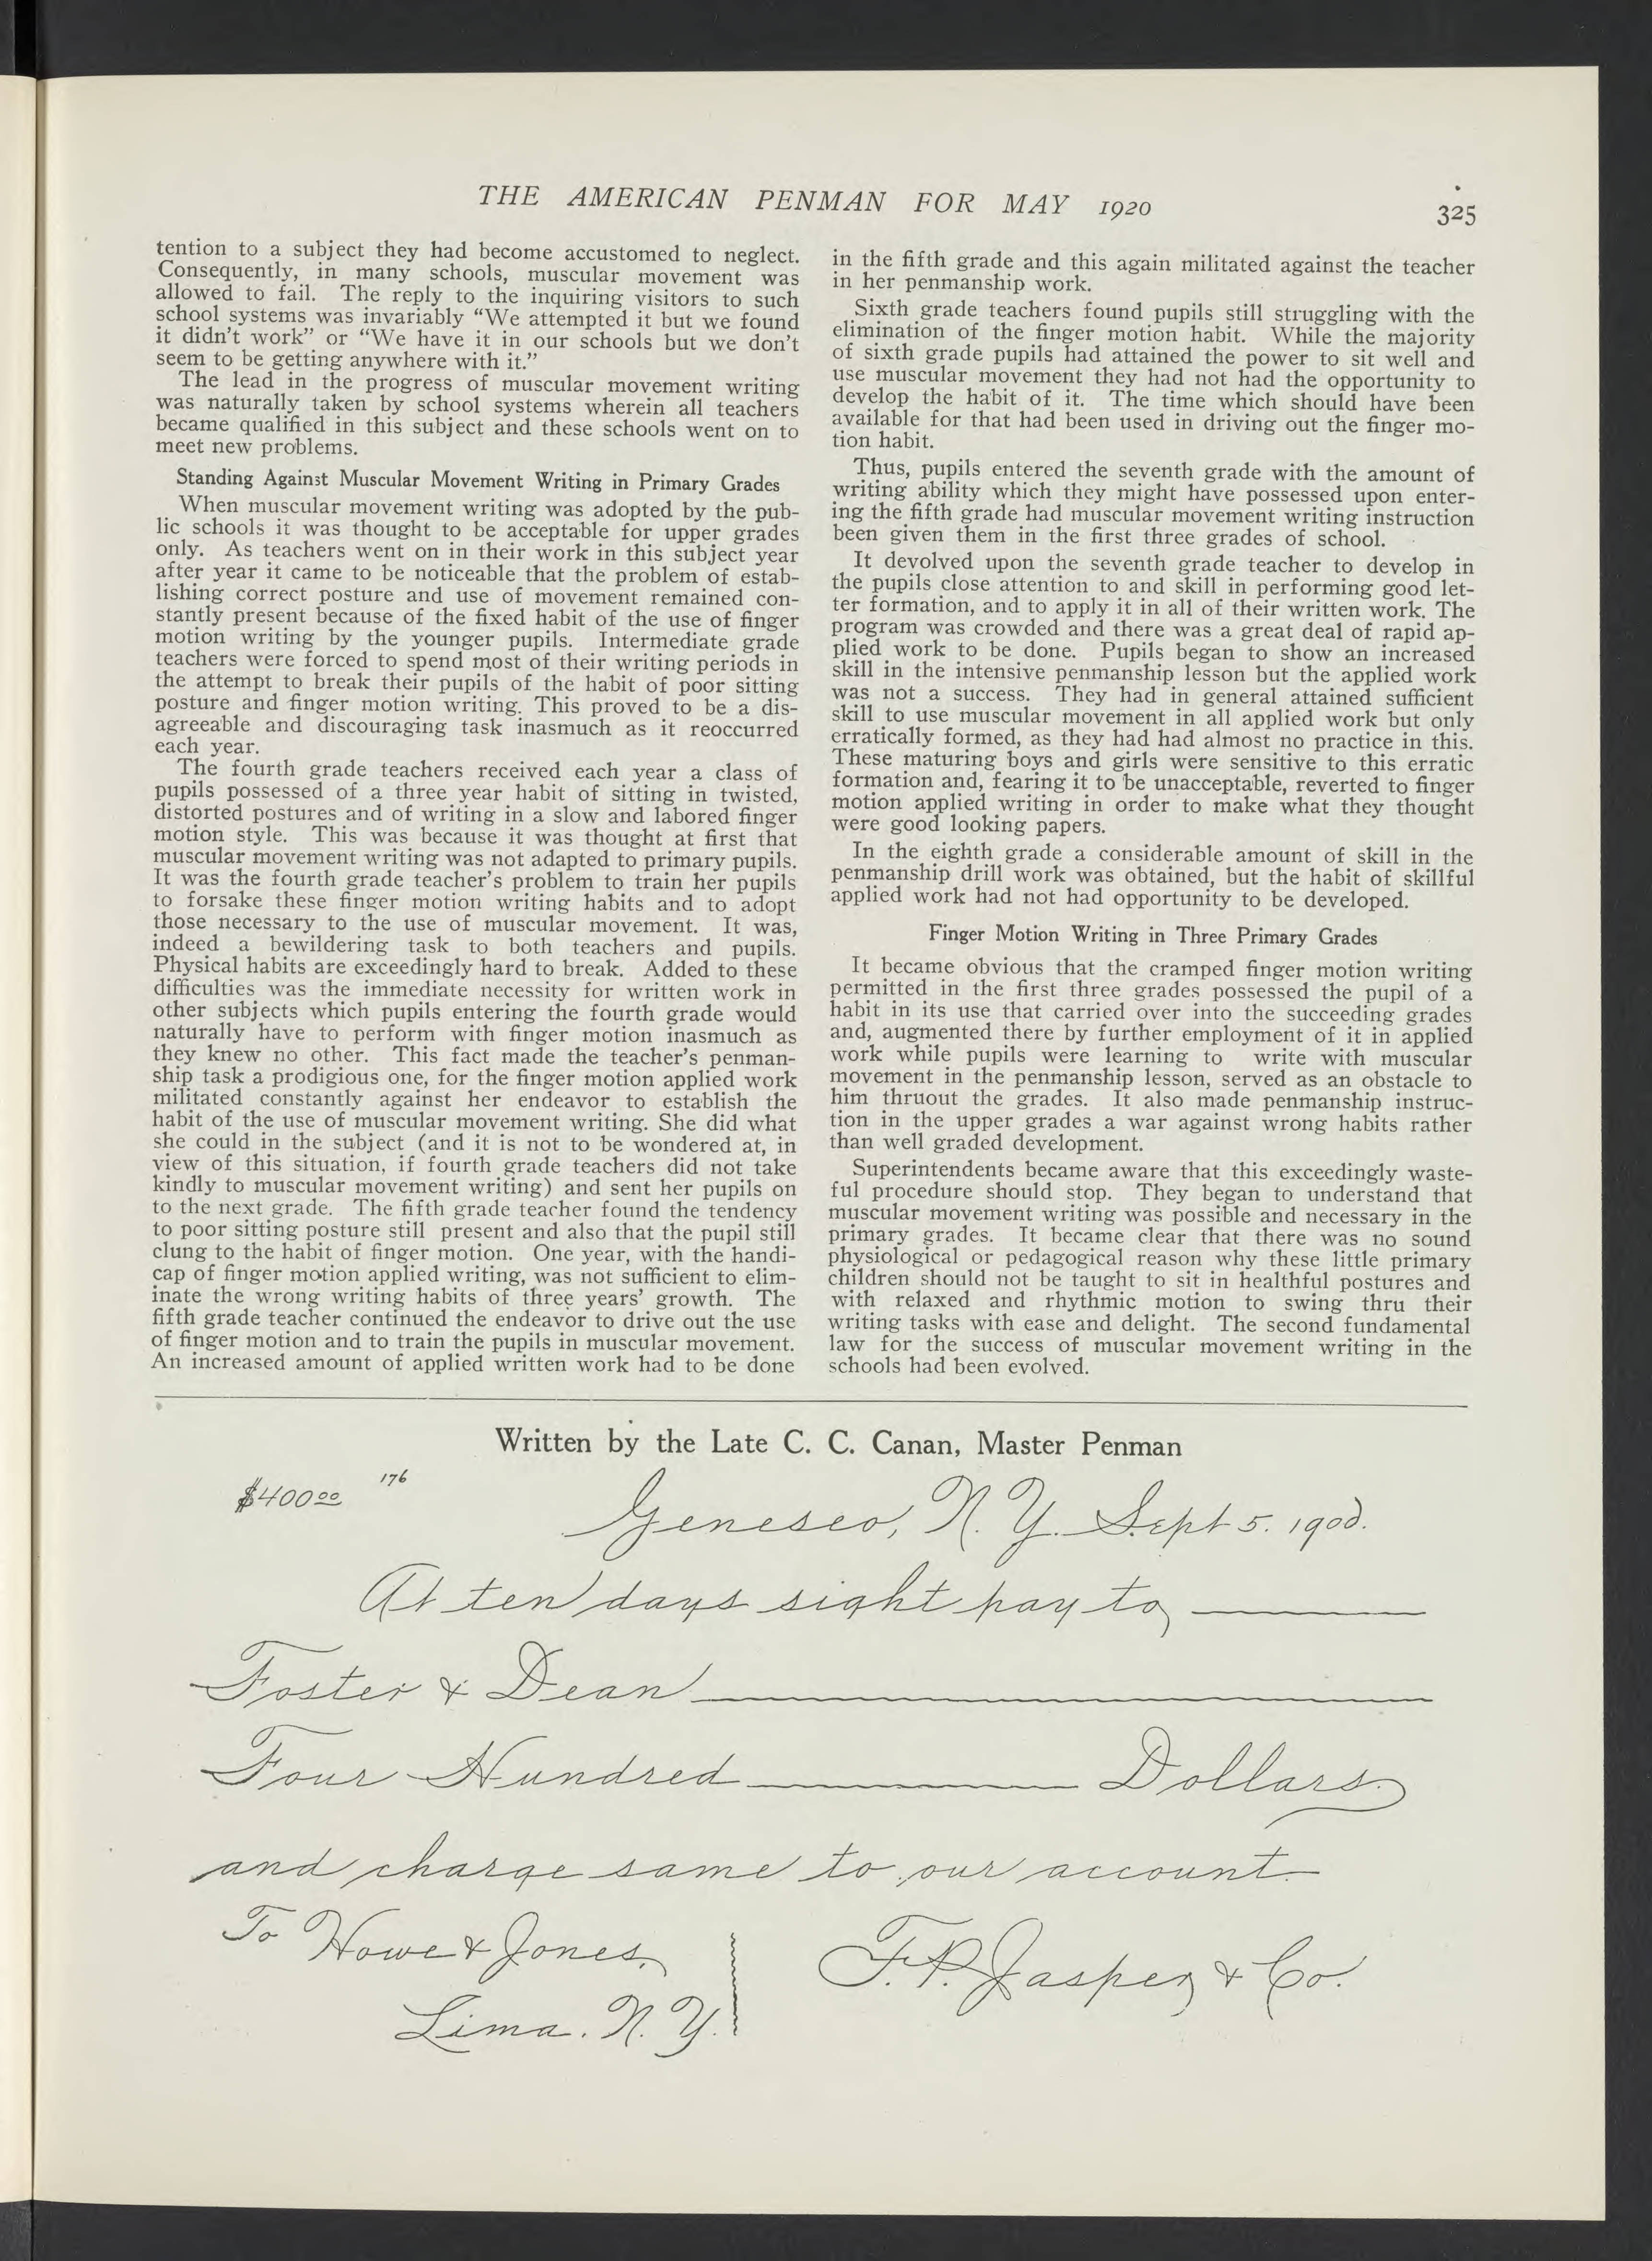 THE AMERICAN PENMAN FOR MAY 1920
325
tention to a subject they had become accustomed to neglect.
Consequently, in many schools, muscular movement was
allowed to fail. The reply to the inquiring visitors to such
school systems was invariably “We attempted it but we found
it didn’t work” or “We have it in our schools but we don’t
seem to be getting anywhere with it.”
The lead in the progress of muscular movement writing
was naturally taken by school systems wherein all teachers
became qualified in this subject and these schools went on to
meet new problems.
Standing Against Muscular Movement Writing in Primary Grades
When muscular movement writing was adopted by the pub-
lic schools it was thought to be acceptable for upper grades
only. As teachers went on in their work in this subject year
after year it came to be noticeable that the problem of estab-
lishing correct posture and use of movement remained con-
stantly present because of the fixed habit of the use of finger
motion writing by the younger pupils. Intermediate grade
teachers were forced to spend most of their writing periods in
the attempt to break their pupils of the habit of poor sitting
posture and finger motion writing. This proved to be a dis-
agreeable and discouraging task inasmuch as it reoccurred
each year.
The fourth grade teachers received each year a class of
pupils possessed of a three year habit of sitting in twisted,
distorted postures and of writing in a slow and labored finger
motion style. This was because it was thought at first that
muscular movement writing was not adapted to primary pupils.
It was the fourth grade teacher’s problem to train her pupils
to forsake these finger motion writing habits and to adopt
those necessary to the use of muscular movement. It was,
indeed a bewildering task to both teachers and pupils.
Physical habits are exceedingly hard to break. Added to these
difficulties was the immediate necessity for written work in
other subjects which pupils entering the fourth grade would
naturally have to perform with finger motion inasmuch as
they knew no other. This fact made the teacher’s penman-
ship task a prodigious one, for the finger motion applied work
militated constantly against her endeavor to establish the
habit of the use of muscular movement writing. She did what
she could in the subject (and it is not to be wondered at, in
view of this situation, if fourth grade teachers did not take
kindly to muscular movement writing) and sent her pupils on
to the next grade. The fifth grade teacher found the tendency
to poor sitting posture still present and also that the pupil still
clung to the habit of finger motion. One year, with the handi-
cap of finger motion applied writing, was not sufficient to elim-
inate the wrong writing habits of three years’ growth. The
fifth grade teacher continued the endeavor to drive out the use
of finger motion and to train the pupils in muscular movement.
An increased amount of applied written work had to be done
in the fifth grade and this again militated against the teacher
in her penmanship work.
Sixth grade teachers found pupils still struggling with the
elimination of the finger motion habit. While the majority
of sixth grade pupils had attained the power to sit well and
use muscular movement they had not had the opportunity to
develop the habit of it. The time which should have been
available for that had been used in driving out the finger mo-
tion habit.
Thus, pupils entered the seventh grade with the amount of
writing ability which they might have possessed upon enter-
ing the fifth grade had muscular movement writing instruction
been given them in the first three grades of school.
It devolved upon the seventh grade teacher to develop in
the pupils close attention to and skill in performing good let-
ter formation, and to apply it in all of their written work. The
program was crowded and there was a great deal of rapid ap-
plied work to be done. Pupils began to show an increased
skill in the intensive penmanship lesson but the applied work
was not a success. They had in general attained sufficient
skill to use muscular movement in all applied work but only
erratically formed, as they had had almost no practice in this.
These maturing boys and girls were sensitive to this erratic
formation and, fearing it to be unacceptable, reverted to finger
motion applied writing in order to make what they thought
were good looking papers.
In the eighth grade a considerable amount of skill in the
penmanship drill work was obtained, but the habit of skillful
applied work had not had opportunity to be developed.
Finger Motion Writing in Three Primary Grades
It became obvious that the cramped finger motion writing
permitted in the first three grades possessed the pupil of a
habit in its use that carried over into the succeeding grades
and, augmented there by further employment of it in applied
work while pupils were learning to write with muscular
movement in the penmanship lesson, served as an obstacle to
him thruout the grades. It also made penmanship instruc-
tion in the upper grades a war against wrong habits rather
than well graded development.
Superintendents became aware that this exceedingly waste-
ful procedure should stop. They began to understand that
muscular movement writing was possible and necessary in the
primary grades. It became clear that there was no sound
physiological or pedagogical reason why these little primary
children should not be taught to sit in healthful postures and
with relaxed and rhythmic motion to swing thru their
writing tasks with ease and delight. The second fundamental
law for the success of muscular movement writing in the
schools had been evolved.
Written by the Late C. C. Canan, Master Penman
$400 00 176
Geneseo, N. Y. Sept 5. 1900.
At ten days sight pay to
Foster & Dean
Four Hundred Dollars
and charge same to our account.
To Howe & Jones,
Lima. N. Y.
F. P. Jasper & Co.